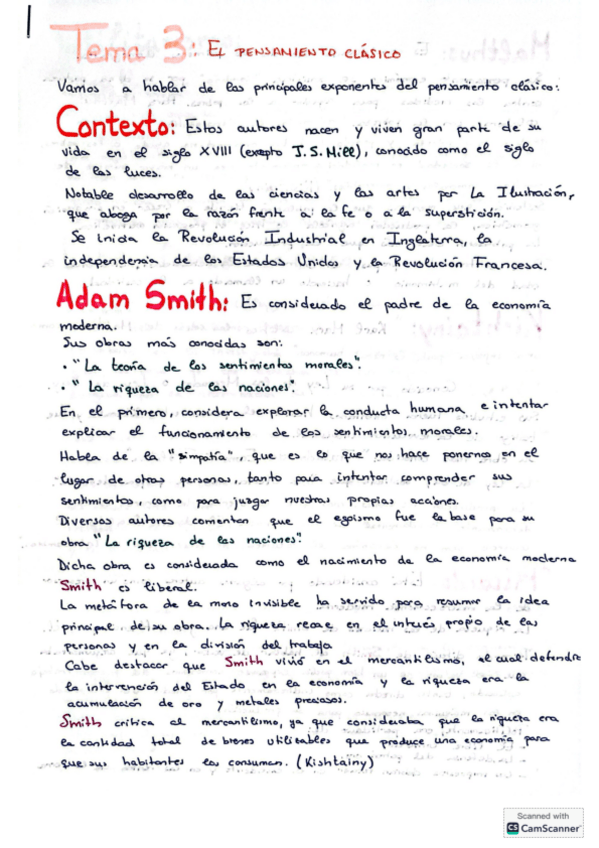 Tema 3: EL PENSAMIENTO CLÁSICO
Vamos a hablar de los principales exponentes del pensamiento clásico:
Contexto: Estos autores nacen y viven gran parte de su
vida en el siglo XVIII (exepto J.S. Mill), conocido como el siglo
de las luces.
Notable desarrollo de las ciencias y las artes por La Ilustración,
que aboga por la razón frente a la fe o a la superstición.
Se inicia la Revolución Industrial en Inglaterra, la
independencia de los Estados Unidos y la Revolución Francesa.
Adam Smith: Es considerado el padre de la economía
moderna.
Sus obras más conocidas son:
• "La teoría de los sentimientos morales".
• "La riqueza de las naciones".
En el primero, considera explorar la conducta humana e intentar
explicar el funcionamiento de los sentimientos morales.
Habla de la "simpatía", que es lo que nos hace ponernos en el
lugar de otras personas, tanto para intentar comprender sus
sentimientos, como para juzgar nuestras propias acciones.
Diversos autores comentan que el egoísmo fue la base para su
obra "La riqueza de las naciones".
Dicha obra es considerada como el nacimiento de la economía moderna
Smith es liberal.
La metáfora de la mano invisible ha servido para resumir la idea
principal de su obra. La riqueza recae en el interés propio de las
personas y en la división del trabajo
Cabe destacar que Smith vivió en el mercantilismo, el cual defendía
la intervención del Estado en la economía y la riqueza era la
acumulación de oro y metales preciosos.
Smith critica al mercantilismo, ya que consideraba que la riqueza era
la cantidad total de bienes utilizables que produce una economía para
que sus habitantes los consuman. (Kishtainy)
Scanned with
CS CamScanner